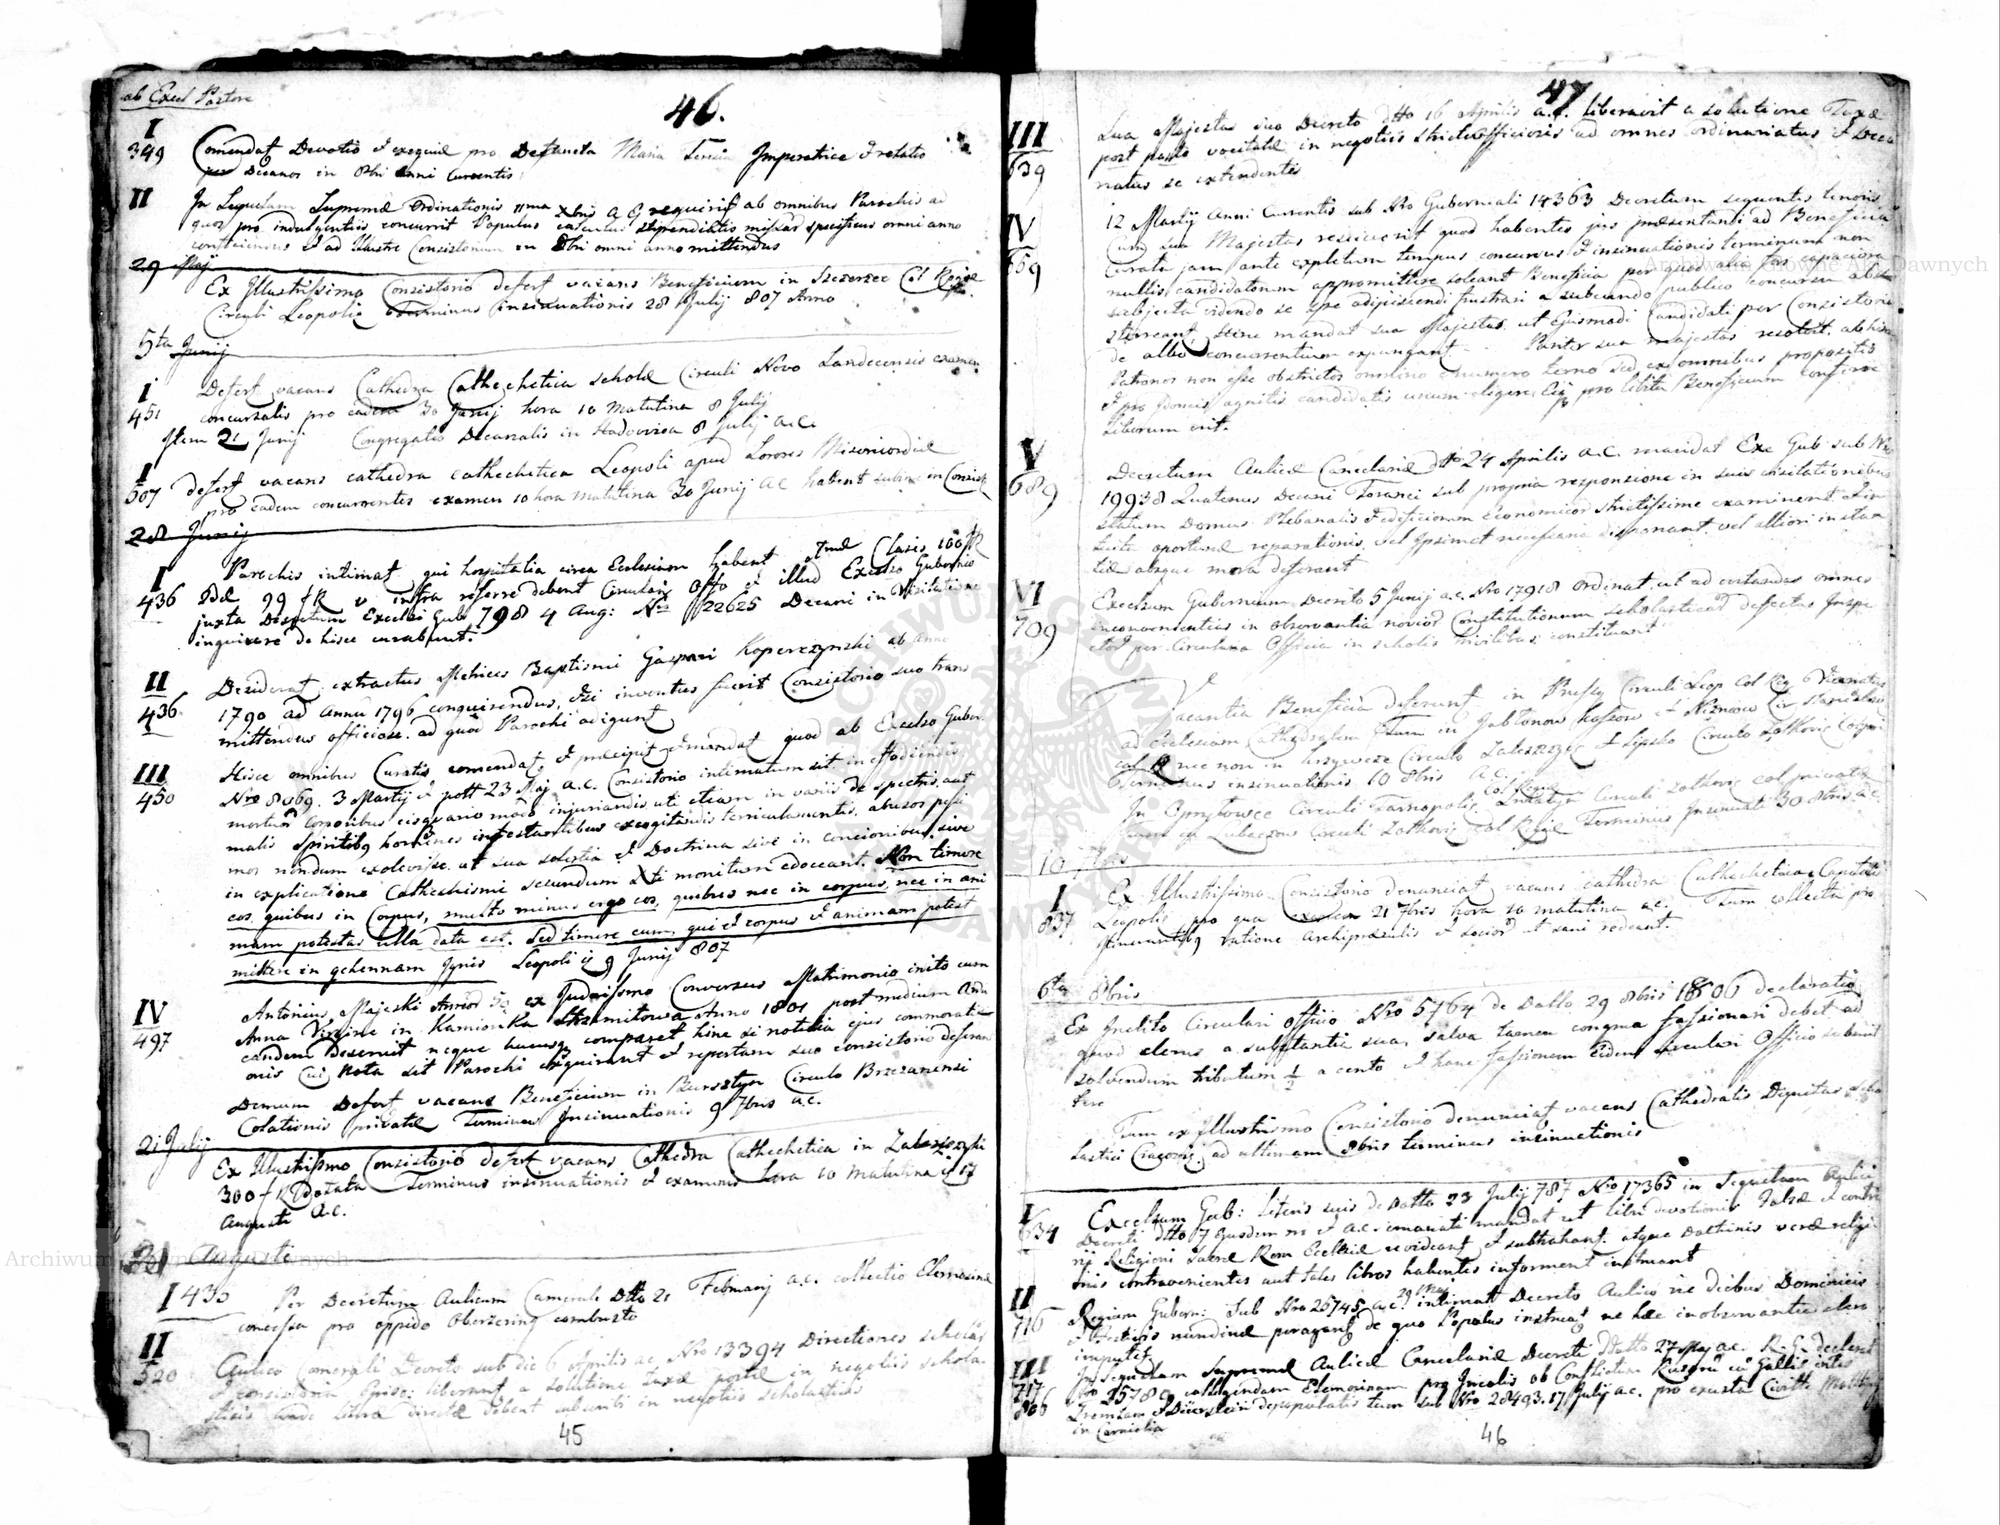 ab Excel Pastore
46.
I
349
Comendat Devotio et exequiae pro Defuncta Maria Teresia Imperatrice et relatio
per Decanos in 8bri Anni Currentis
II
In Sequelam Supremae Ordinationis 11ma Xbris a. G requirit ab omnibus Parochis ad
quos pro indulgentiis concurrit Populus stipendiatis missar specificus omni anno
conficiendus et ad Illustre Consistorium in 8bri omni anno mittendus
29 Maj
Ex Illustrissimo Consistorio defert vacans Beneficium in Szczerzec Col Regiae
Circuli Leopolis Terminus insinuationis 28 Julij 807 Anno
5ta Junij
I
451
Defert vacans Cathedra Cathechetica scholae Circuli Novo Sandecensis examen
concursalis pro eadem 30 Junij hora 10 Matutina 8 Julij
Item 21 Junij Congregatio Decanalis in Hodovica 8 Julij a.c.
I
507
Defert vacans cathedra cathechetica Leopoli apud Sorores Misericordiae
pro eadem concurrentes examen 10 hora matutina 30 Junij a.c. habent subire in Consist
28 Junij
I
436
Parochis intimat, qui hospitalia circa Ecclesiam habent Clasis 100 fR
99 fR infra referre debent Circulari Offo et illud Excelso Gubernio
juxta Decretum Excelsi Gub 798 4 Aug: Nro 22625 Decani in Visitatione
inquirere de hisce curabunt.
II
436
Desiderat extractus Metrices Baptismi Gaspari Koperczynski ab anno
1790 ad Annu 1796 conquirendus, et si inventus fuerit Consistorio suo trans
mittendus officiose. ad quod Parochi adigunt
III
450
Hisce omnibus Curatis comendat, et praecipit et mandat quod ab Excelso Guber.
Nro 8069. 3 Martij et post 23 Maj a.c. Consistorio intimatum sit in effodiendis
mortuor corporibus eisque vano modo injuriandis, uti etiam in variis de spectris, aut
malis Spiritibq homines infestantibus excogitandis terriculamentis, abusos pessi
mos nondum exolevisse, ut sua solertia et Doctrina sive in concionibus, sive
in explicatione Cathechismi secundum Xti monitum edoceant. Non timere
eos, quibus in Corpus, multo minus ergo eos, quibus nec in corpus, nec in ani
mam potestas ulla data est. Sed timere eum, qui et corpus et animam potest
mittere in gehennam Ignis Leopoli 9 Junij 807
IV
497
Antonius Majeski Annor ex Judaissmo Conversus Matrimonio inito cum
Anna Virgine in Kamionka Strumitowa Anno 1801 post medium Anni
eandem Deseruit neque hucusq comparet hinc si notitia ejus commorati
onis Cui nota sit Parochi exquirant et repertum suo consistorio deferan
Demum Defert vacans Beneficium in Bursztyn Circulo Brzezanensi
Colationis privatae Terminus Insinuationis 9 7bris a.c.
21 Julij
Ex Illustrissimo Consistorio defert vacans Cathedra Cathechetica in Zaleszczyki
300 fR Dotata Terminus insinuationis et examinis hora 10 Matutina 17
Augusti a.c.
Augusti
I 433
Per Decretum Aulicum Camerale Dtto 21 Februarij a.c. collectio Elemosinae
concessa pro oppido Oberzering combusto
II
520
Aulico Camerali Decreto sub die 6 Aprilis ac. Nro 13394 Directiones scholar
et consistoria liberant a solutione Taxae portae in negotiis schola-
sticis unde literae directae debent subscribi in negotiis scholasticis
45
47
III
639
Sua Majestas suo Decreto dtto 16 Aprilis a.c. liberavit a solutione Taxae
post paulo vocitatae in negotiis stricte officiosis ad omnes ordinariatus et Deca
natus se extendentis
IV
659
12 Martij Anni Currentis sub Nro Gubernali 14363 Decretum sequentis tenoris
Cum sua Majestas resciverit quod habentes jus praesentandi ad Beneficia
Curata jam ante expletum tempus concursus et insinuationis terminum non
nullis candidatorum appromittere soleant Beneficia per quos alia fors capaciora
subjecta videndo se spe adipiscendi frustrari a subeundo publico concursu
sterreant, hinc mandat sua Majestas, ut Ejusmodi Candidati per Consistoria
de albo concurrentium expungant. Pariter sua majestas resolvit, ab hinc
Patronos non esse obstrictos omnino e numero terno sed ex omnibus propositis
et pro Idoneis agnitis candidatis unum eligere, Eiq pro libitu Beneficium conferre
Liberum erit.
V
689
Decretum Aulicae Cancelariae dtto 24 Aprilis a.c. mandat Exc Gub sub Nro
19938 Quatenus Decani Foranei sub propria responsione in suis visitationibus
statum Domus Plebanalis et edificiorum economicor strictissime examinent
oportunae reparationis, vel Ipsimet necessaria disponant vel altiori instan
tiae absque mora deferant
VI
709
Excelsum Gubernium Decreto 5 Junij a.c. Nro 17918 Ordinat, ut ad evitandas omnes
inconvenientias in observantia novior Constitutionum scholasticar defectus Inspe
ctor per Circularia Officia in scholis trivilibus constituant
Vacantia Beneficia deferunt in Prussy Circuli Leop Col Rg Vicariatus
ad Ecclesiam Cathedralem Tum in Jablonow et Nizniow Cir Stanislao
col R nec non in Circulo Zaleszczyc et Lipsko Circulo Zolkovic
Terminus insinuationis 10 8bris a.c.
In Opryłowce Circuli Tarnopolis, Col Regiae Circuli Zolkovic col privatae
Tum in Lubaczow Circuli Zolkovic Col Regiae Terminus Insinuat 30 8bris a.c.
10 7bris
I
837
Ex Illustrissimo Consistorio denunciat vacans cathedra Cathechetica Capituli
Leopolis pro qua examen 21 7bris hora 10 matutina a.c. Tum collecta pro
Itinerantibq ratione Archipraesulis et socior ut sani redeant.
6ta 8bris
Ex Inclito Circulari Officio Nro 5764 de Datto 29 8bris 1806 declaratio
quod clerus a substantia sua, salva tamen congrua fassionari debet ad
solvendum tributum ½ a cento et hanc fassionem Eidem circulari Officio submit
tere
Tum ex Illustrissimo Consistorio denunciat vacans Cathedralis Dignitas Schola
stici Cracovis, ad ultimam 8bris terminus insinuationis
I
634
Excelsum Gub: literis suis de Datto 23 Julij 787 Nro 17365 in Sequelam Aulici
Decreti dtto 7 Ejusdem m et a.c. emanati mandat ut libri devotionis falsae et contra
rij Religioni Sacrae Rom Ecclesiae revideant et subtrahant. atque Doctrinis verae religi
onis contravenientes aut tales libros habentes informent instruant
II
716
Regium Gubern: Sub Nro 25745 a.c. 29 Maj intimat Decreto Aulico ne diebus Dominicis
et Festivis nundinae peragant, de quo Populus instruat, ne haec inobservantia clero
imputet
III
717
806
In sequelam Supremae Aulicae Cancelariae Decreti Datto 27 Maj a.c. R. G. declarat
Nro 25789 colligendam Elemosinam pro Incolis ob Conflictum Russor cu Gallis inter
Kremsam et Dürstein depopulatis tum sub Nro 28493. 17 Julij a.c. pro exusta Civitte Mottling
in Carniolia
46
Archiwum Główne Akt Dawnych
Archiwum Główne Akt Dawnych